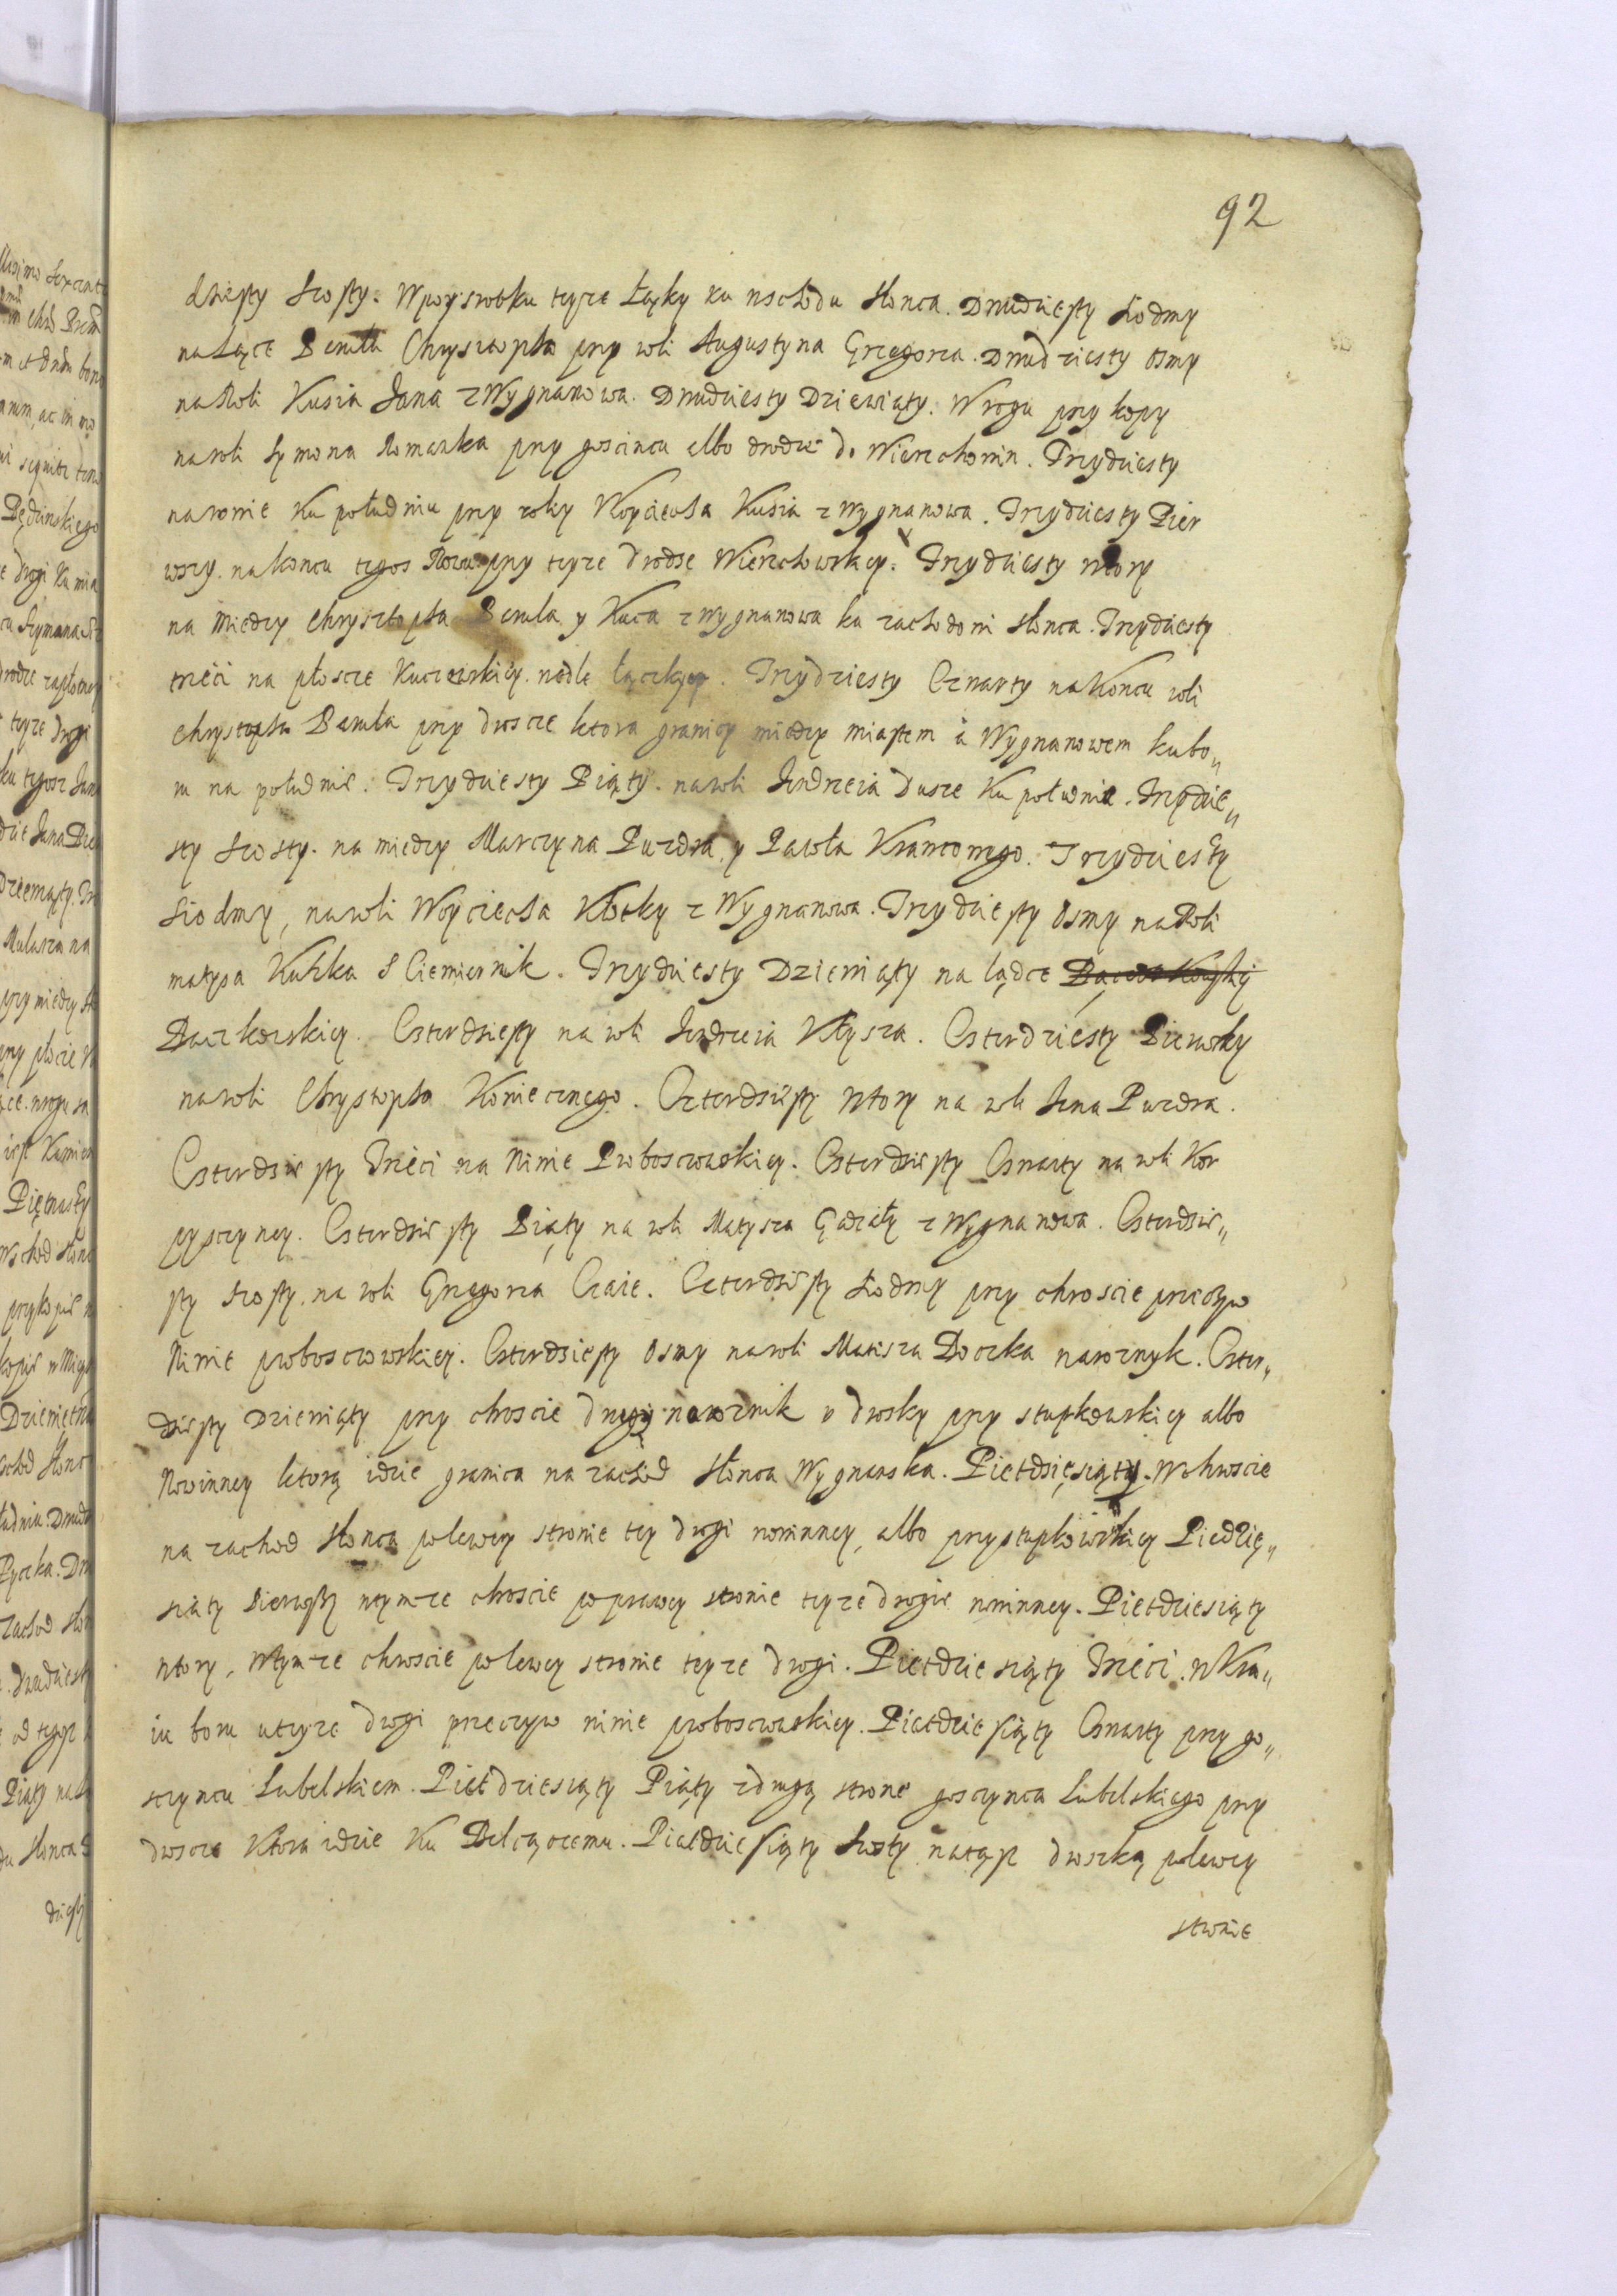 92
dziesty szosty. W poysrotku teyze Łąky ku wschodu słonca. Drudziesty siodmy
na Łące Bemla Chrysztopha przy roli Augustyna Grzegorza. Drudziesty osmy
na Roli Kusia Jana z Wygnanowa. Drudziesty Dziewiąty. W rogu przy kopy
na roli Symona Romaszka przy goscincu albo drodze do Wierzchowin. Trzydziesty
na rowie Ku południu przy roley Woyciecha Kusia z Wygnanowa. Trzydziesty Pier
wszy. na koncu tegos Rowu przy teyze drodze Wierzchowskiey. Trzydziesty wtory
na miedzy Chrysztopha Bemla y Kuca z Wygnanowa ku zachodowi słonca. Trzydziesty
trzeci na płosce Kuczewskiey. nedle łączkey. Trzydziesty Czwarty na Koncu roli
Chrystopha Bemla przy drosce ktora graniczy miedzy miastem a Wygnanowem ku bo„
ru na południe. Trzydziesty Piąty. na roli Jendrzeia Dusze Ku południe. Trzydzie„
sty szosty. na miedzy Marczyna Puzdra y Pawła Krawcowego. Trzydziesty
siodmy, na roli Woyciecha Kłotky z Wygnanowa. Trzydziesty osmy na Roli
matysa Kuhka S Ciemiernik. Trzydziesty Dziewiąty na lądce
Daczkowskiey. Czterdziesty na roli Jendrzeia Kłysza. Czterdziesty Pierwszy
na roli Chrystopha Koniecznego. Czterdziesty wtory na roli Jana Puzdra.
Czterdziesty Trzeci na Niwie Proboszowskiey. Czterdziesty Czwarty na roli Kor
pysczyney. Czterdziesty Piąty na roli Matysza Gadzały z Wygnanowa. Czterdzie„
sty szosty. na roli Grzegorza Czaie. Czterdziesty siodmy przy chroscie przeczyw
Niwie proboszowskiey. Czterdziesty osmy na roli Matisza Doczka naroznyk. Czter„
dziesty Dziewiąty przy chroscie drugi naroznik v drosky przy stupkowskiey albo
Nowinney ktorą idzie granica na zachod słonca Wygnanska. Pietdziesiąty. W chroscie
na zachod słonca po lewey stronie tey drogi nowinney, albo przystupkowskiey Piedzie„
siąty Pierwszy wtym-ze chroscie po prawey stronie teyze drogie nowinney. Pietdziesiąty
wtory, Wtym-ze chroscie po lewey stronie teyze drogi. Pietdziesiąty Trzeci. W Kra„
iu boru u teyze drogi przeczyw niwie proboszowskiey. Pietdziesiąty Czwarty przy go„
sczyncu Lubelskiem. Pietdziesiąty Piąty z drugą strone gosczynca Lubelskiego przy
drosce Ktora idzie Ku Bełczącemu. Pietdziesiąty szosty natąsz droszką po lewey
stronie